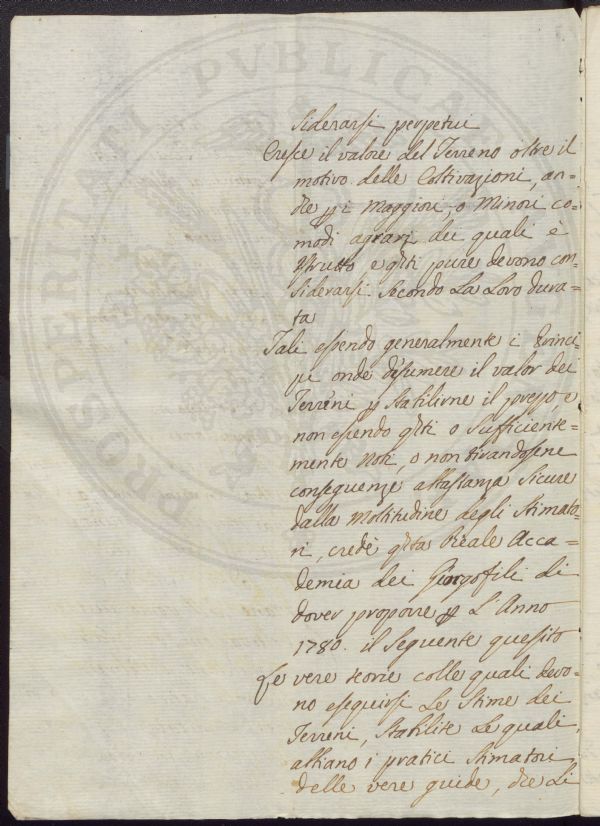 siderarsi perpetui
Cresce il valore del Terreno oltre il
motivo delle Coltivazioni, an=
che p i Maggiori, o Minori co=
modi agrarj dei quali è
Frutto e qsti pure devono con
siderarsi secondo La Loro dura=
ta
Tali essendo generalmente i Princi=
pi onde desumere il valor dei
Terreni p stabilirne il prezzo, e
non essendo qsti o sufficiente=
mente Noti, o non tirandosene
conseguenze abbastanza sicure
dalla Moltitudine degli Stimato=
ri, credè qsta Reale Acca=
demia dei Georgofili di
dover proporre p L'Anno
1780. il seguente quesito
Le vere teorie colle quali devo=
no eseguirsi Le Stime dei
Terreni, stabilite Le quali,
abbiano i pratici Stimatori
delle vere guide, che Li
PROSPERITATI PVBLICAE